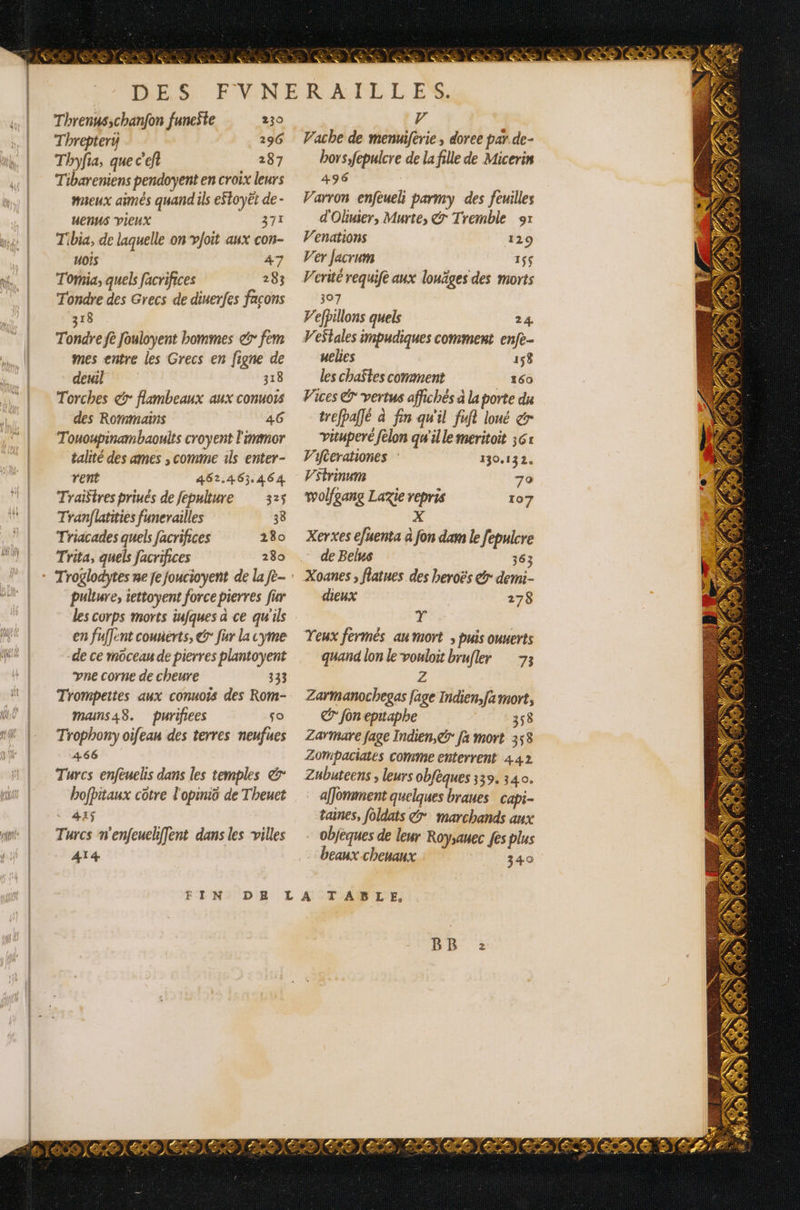 DES FVNERAILLES.
Threnus,chanſon funeſte 230
Threpterij 296
Thyſia, que c'eſt 287
Tibareniens pendoyent en croix leurs
mieux aimés quand ils eſtoyẽt de-
uenus vieux 371
Tibia, de laquelle on vſoit aux con-
uois 47
Tomia, quels ſacrifices 283
Tondre des Grecs de diuerſes façons
318
Tondre ſe ſouloyent hommes & fem
mes entre les Grecs en ſigne de
deuil 318
Torches & flambeaux aux conuois
des Rommains 46
Tououpinambaoults croyent l'immor
talité des ames , comme ils enter-
rent 462.463.464
Traiſtres priués de ſepulture 325
Tranſlatities funerailles 38
Triacades quels ſacrifices 280
Trita, quels ſacrifices 280
Troglodytes ne ſe ſoucioyent de la ſe-
pulture, iettoyent force pierres ſur
les corps morts iuſques à ce qu'ils
en fuſſent couuerts, & ſur la cyme
de ce mõceau de pierres plantoyent
vne corne de cheure 333
Trompettes aux conuois des Rom-
mains 48. purifiees 50
Trophony oiſeau des terres neufues
466
Turcs enſeuelis dans les temples &
hoſpitaux cõtre l'opiniõ de Theuet
415
Turcs n'enſeueliſſent dans les villes
414
V
Vache de menuiſerie , doree par de-
hors,ſepulcre de la fille de Micerin
496
Varron enſeueli parmy des feuilles
d'Oliuier, Murte, & Tremble 91
Venations 129
Ver ſacrum 155
Verité requiſe aux louäges des morts
307
Veſpillons quels 24
Veſtales impudiques comment enſe-
uelies 158
les chaſtes comment 160
Vices & vertus affichés à la porte du
treſpaſſé à fin qu'il fuſt loué &
vituperé ſelon qu'il le meritoit 361
Viſcerationes 130.132.
Vſtrinum 79
wolfgang Lazie repris 107
X
Xerxes eſuenta à ſon dam le ſepulcre
de Belus 363
Xoanes , ſtatues des heroës & demi-
dieux 278
Y
Yeux fermés au mort , puis ouuerts
quand lon le vouloit bruſler 73
Z
Zarmanochegas ſage Indien,ſa mort,
& ſon epitaphe 358
Zarmare ſage Indien,& ſa mort 358
Zompaciates comme enterrent 442
Zubuteens , leurs obſeques 339. 340.
aſſomment quelques braues capi-
taines, ſoldats & marchands aux
obſeques de leur Roy,auec ſes plus
beaux cheuaux 340
FIN DE LA TABLE.
BB 2